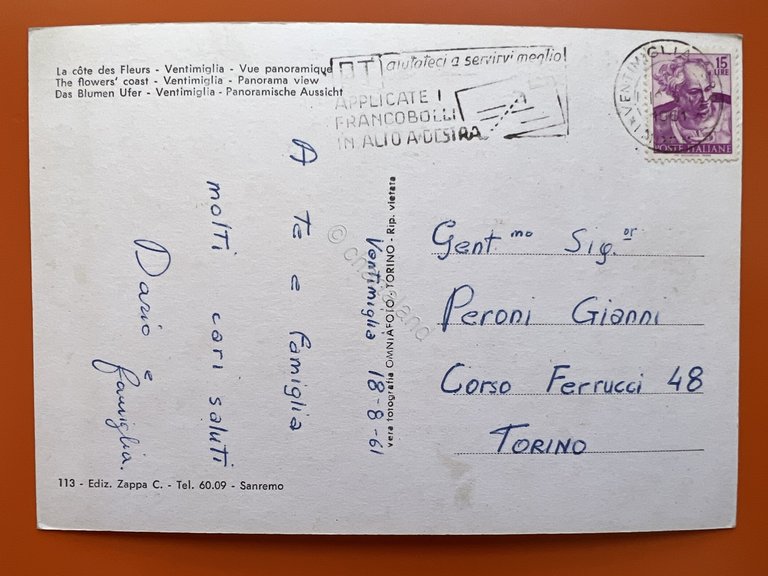 La côte des Fleurs - Ventimiglia - Vue panoramique
The flowers' coast - Ventimiglia - Panorama view
Das Blumen Ufer - Ventimiglia - Panoramische Aussicht
aiutateci a servirvi meglio!
APPLICATE I
FRANCOBOLLI
IN ALTO A DESTRA
VENTIMIGLIA
15
LIRE
POSTE ITALIANE
Ventimiglia 18-8-61
A te e famiglia
molti cari saluti
Dario e
famiglia.
vera fotografia OMNIAFOTO - TORINO - Rip. vietata
Gent.mo Sig.or
Peroni Gianni
Corso Ferrucci 48
TORINO
113 - Ediz. Zappa C. - Tel. 60.09 - Sanremo